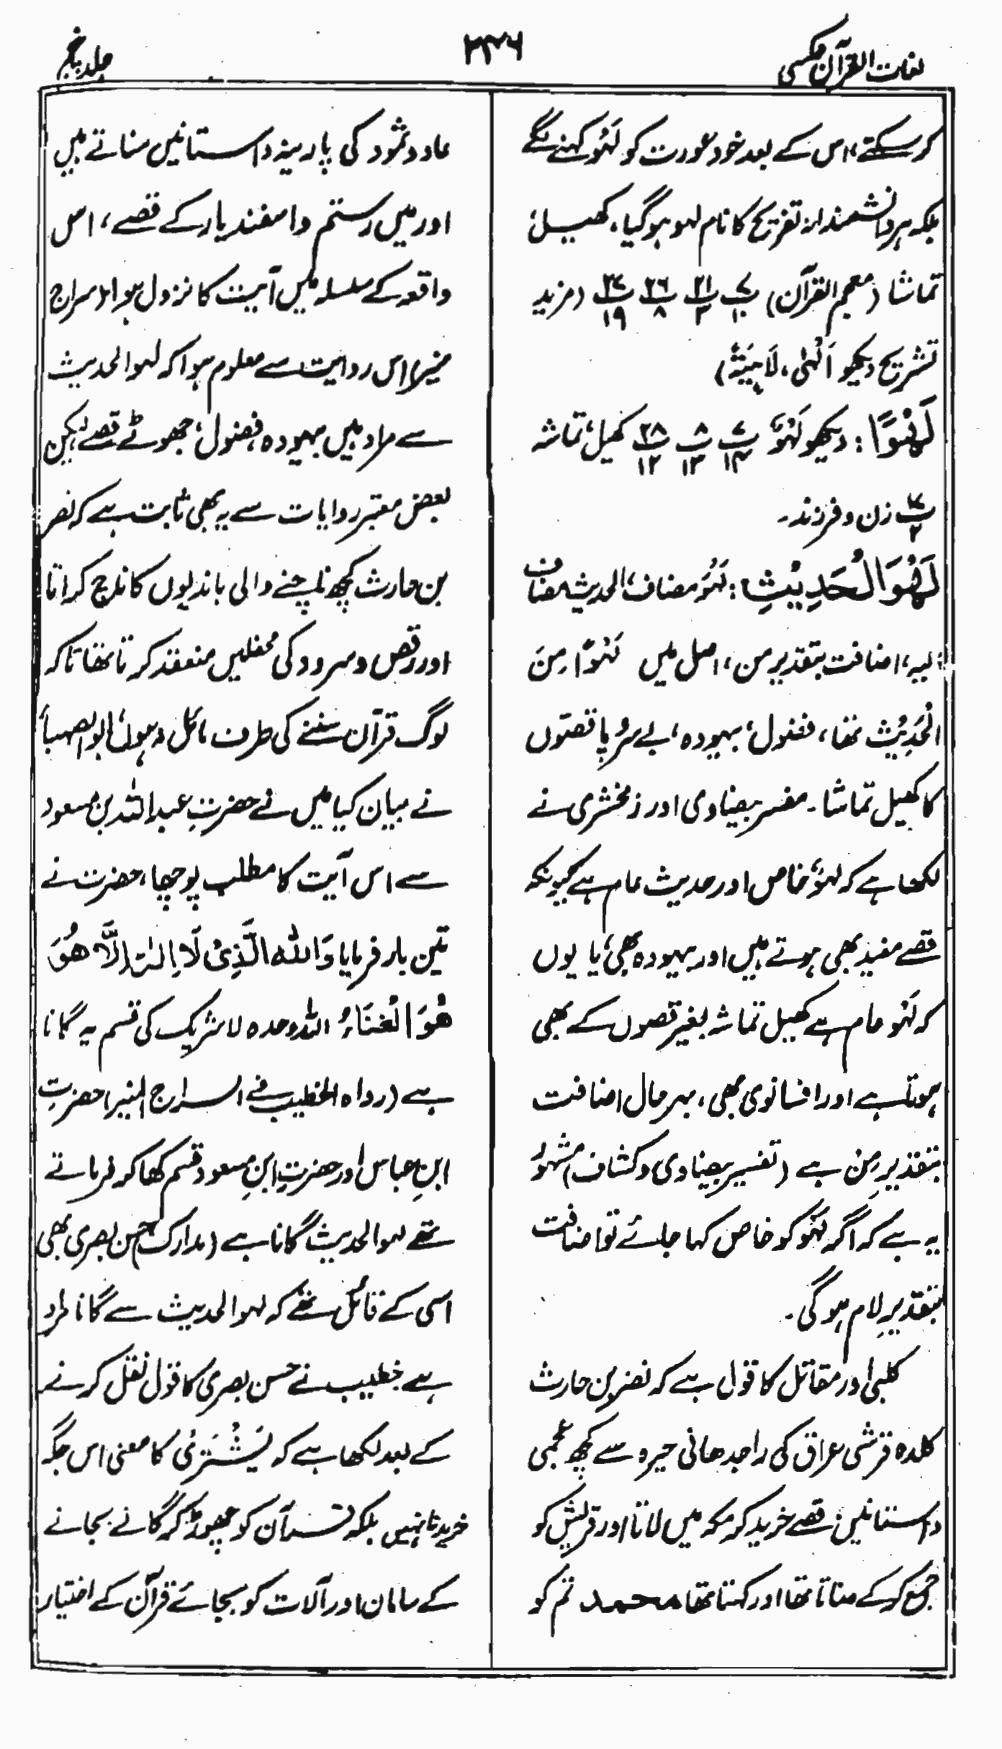 لغات القرآن عکسی
۲۴۶
جلد پنجم
کر سکتے، اس کے بعد خود عورت کو لَہْو کہنے لگے
بلکہ ہر دانشمندانہ تفریح کا نام لہو ہوگیا، کھیل،
تماشا (معجم القرآن) (مزید
تشریح دیکھو اَلْہٰی، لَاہِیَۃً)
لَهْوًا: دیکھو لَہْوٌ کھیل، تماشہ
زن و فرزند۔
لَهْوَ الْحَدِیْثِ: لَہْوَ مضاف، الحدیث مضاف
الیہ، اضافت بتقدیر من، اصل میں لَہْوًا مِنَ
الْحَدِیْث تھا، فضول، بیہودہ، بے سروپا قصّوں
کا کھیل تماشا۔ مفسر بیضاوی اور زمخشری نے
لکھا ہے کہ لہو خاص اور حدیث عام ہے کیونکہ
قصے مفید بھی ہوتے ہیں اور بیہودہ بھی، یا یوں
کہ لَہْو عام ہے کھیل تماشہ بغیر قصوں کے بھی
ہوتا ہے اور افسانوی بھی، بہرحال اضافت
بتقدیرِ مِن ہے (تفسیر بیضاوی وکشاف) مشہور
یہ ہے کہ اگر لَہْو کو خاص کہا جائے تو اضافت
بتقدیرِ لام ہوگی۔
کلبی اور مقاتل کا قول ہے کہ نضر بن حارث
کلدہ قرشی عراق کی راجدھانی حیرہ سے کچھ عجمی
داستانیں، قصے خرید کر مکہ میں لاتا اور قریش کو
جمع کر کے سناتا تھا اور کہتا تھا محمد تم کو
عاد و ثمود کی پارینہ داستانیں سناتے ہیں
اور میں رستم و اسفندیار کے قصے، اس
واقعہ کے سلسلہ میں آیت کا نزول ہوا (سراج
منیر) اس روایت سے معلوم ہوا کہ لہو الحدیث
سے مراد ہیں بیہودہ، فضول، جھوٹے قصے لیکن
بعض معتبر روایات سے یہ بھی ثابت ہے کہ نضر
بن حارث کچھ ناچنے والی باندیوں کا ناچ کراتا
اور رقص و سرود کی محفلیں منعقد کرتا تھا تاکہ
لوگ قرآن سننے کی طرف مائل نہ ہوں، ابو الصہباء
نے بیان کیا میں نے حضرتِ عبداللہ بن مسعود
سے اس آیت کا مطلب پوچھا، حضرت نے
تین بار فرمایا وَاللّٰہِ الَّذِیْ لَا اِلٰہَ اِلَّا هُوَ
هُوَ الْغِنَاءُ اللہ وحدہ لا شریک کی قسم یہ گانا
ہے (رواہ الخطیب فی السراج المنیر) حضرتِ
ابنِ عباس اور حضرتِ ابنِ مسعود قسم کھا کر فرماتے
تھے لہو الحدیث گانا ہے (مدارک) حسن بصری بھی
اسی کے قائل تھے کہ لہو الحدیث سے گانا مراد
ہے خطیب نے حسن بصری کا قول نقل کرنے
کے بعد لکھا ہے کہ یَشْتَرِیْ کا معنی اس جگہ
خریدنا نہیں بلکہ قرآن کو چھوڑ کر گانے بجانے
کے سامان اور آلات کو بجائے قرآن کے اختیار